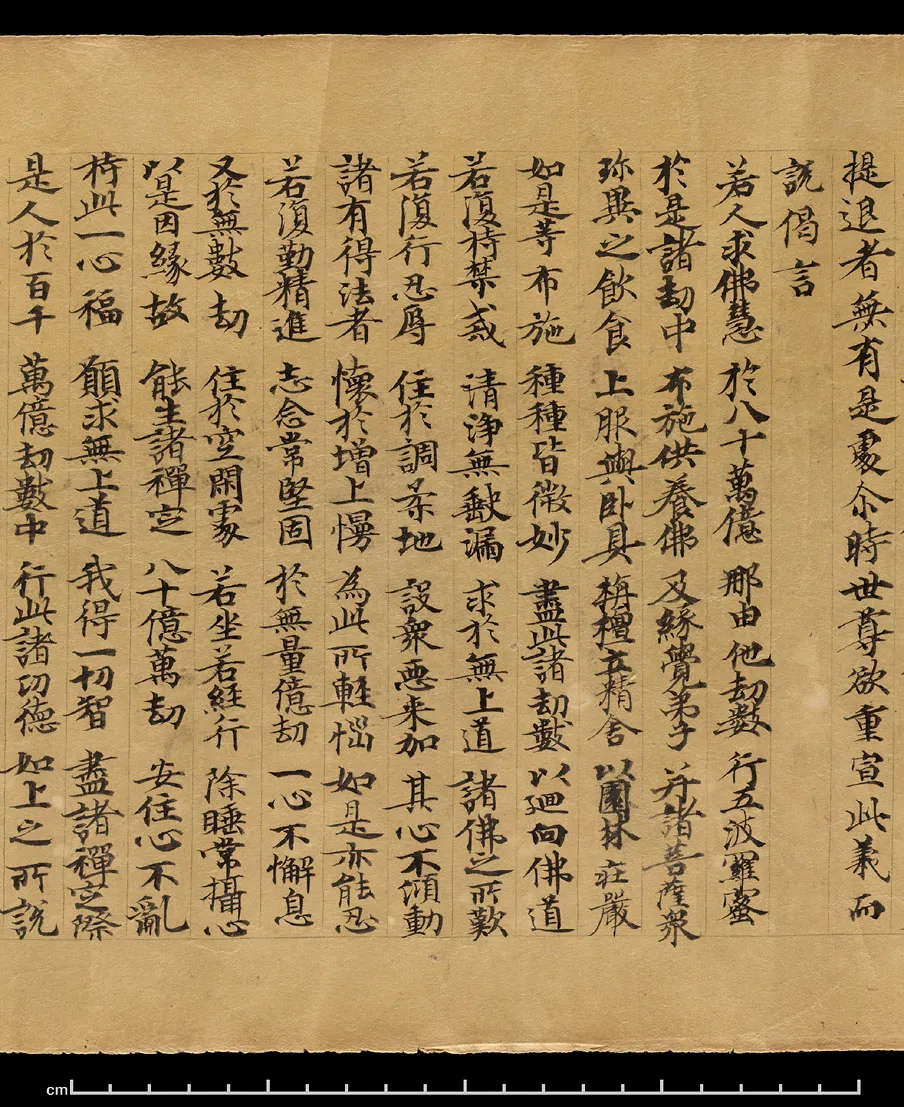 提退者無有是處尒時世尊欲重宣此義而
說偈言
若人求佛慧 於八十萬億 那由他劫數 行五波羅蜜
於是諸劫中 布施供養佛 及緣覺弟子 并諸菩薩眾
珎異之飲食 上服與卧具 栴檀立精舍 以園林莊嚴
如是等布施 種種皆微妙 盡此諸劫數 以迴向佛道
若復持禁戒 清淨無缺漏 求於無上道 諸佛之所歎
若復行忍辱 住於調柔地 設眾惡来加 其心不傾動
諸有得法者 懷於增上慢 為此所輕惱 如是亦能忍
若復勤精進 志念常堅固 於無量億劫 一心不懈息
又於無數劫 住於空閑處 若坐若經行 除睡常攝心
以是因緣故 能生諸禪定 八十億萬劫 安住心不亂
持此一心福 願求無上道 我得一切智 盡諸禪定際
是人於百千 萬億劫數中 行此諸功德 如上之所說
cm